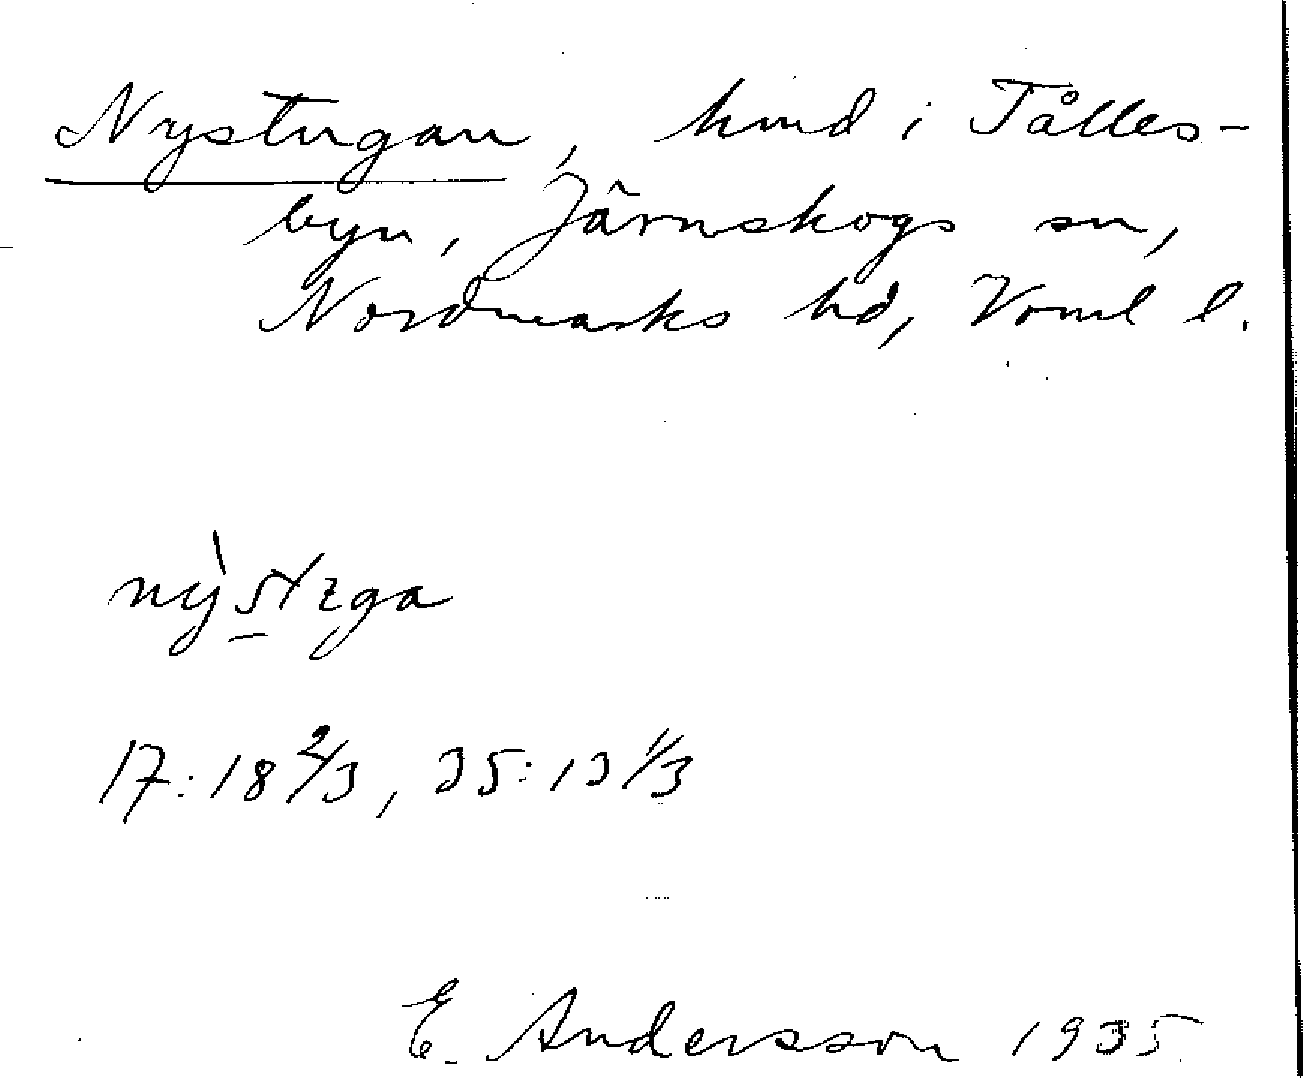 Nystugan, hmd i Tålles-
byn, Järnskogs sn,
Nordmarks hd, Vrml l.
nỳstꞬga
17:18 2/3, 35:13 1/3
E. Andersson 1935